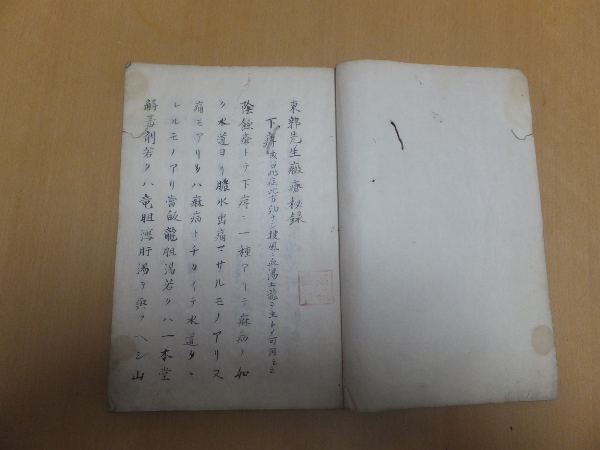 東郭先生黴瘡秘録
下疳
陰蝕瘡トテ下疳ニ一種アリテ麻病ノ如
ク水道ヨリ膿水出痛マサルモノアリス
痛モアリ多ハ麻病トチカイテ水道タヽ
レルモノアリ當皈龍胆湯若クハ一本堂
解毒剤若クハ竜胆瀉肝湯ヲ與フヘシ山